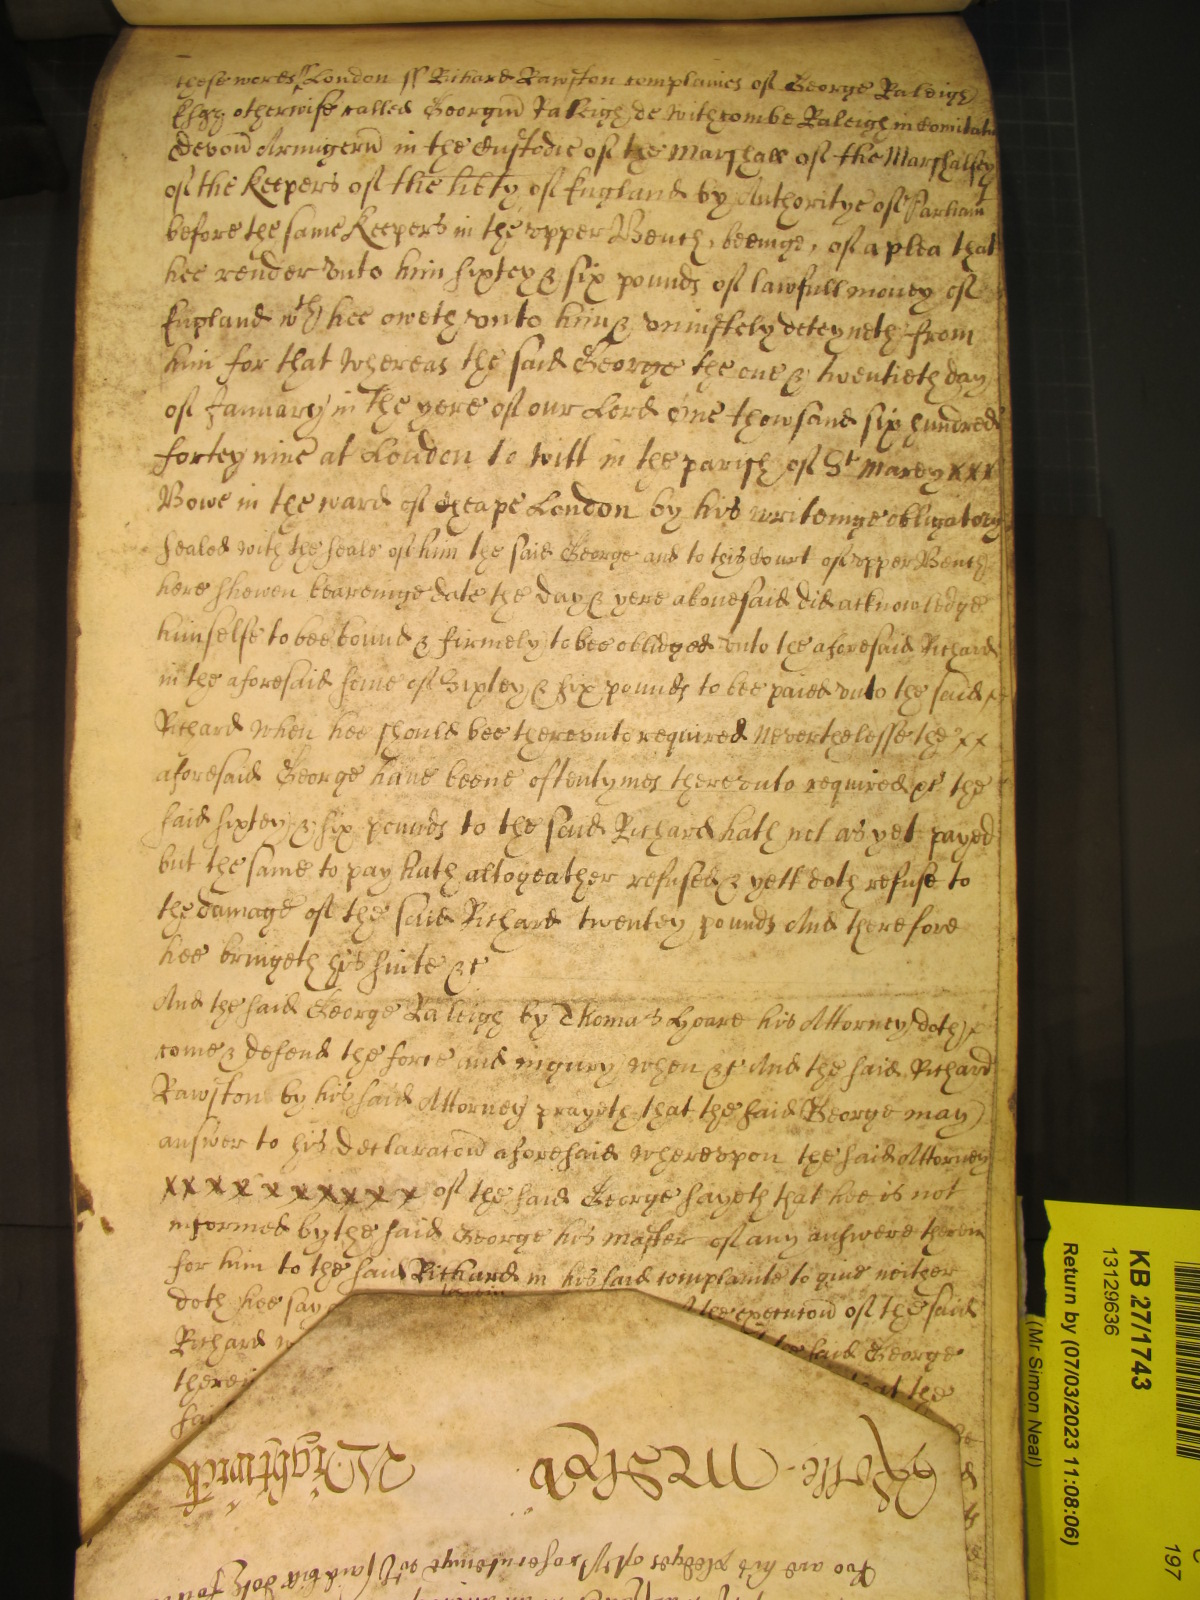 these wordes ss London ss Richard Rawston complaines of George Raleigh
Esqr otherwise called Georgiu Raleigh de Withcombe Raleigh in Comitatu
Devon Armigeru in the Custodie of the Marshall of the Marshalsey
of the Keepers of the libty of England by Authoritye of Parliam
before the same Keepers in the vpper Bench, beeinge, of a plea that
hee render vnto him sixtey & six pounds of lawfull money of
England wch hee oweth vnto him & vniustely deteyneth from
him for that whereas the said George the one & twentieth day
of January in the yere of our Lord One thowsand six hundred
fortey nine at London to witt in the parish of St Marey xxx
Bowe in the ward of Cheape London by his writeinge obligatory
sealed with the seale of him the said George and to this Court of vpper Bench
here shewen beareinge date the day & yere abouesaid did acknowledge
himselfe to bee bound & firmely to bee obliged vnto the aforesaid Richard
in the aforesaid sume of Sixtey & six pounds to bee paied vnto the said x
Richard when hee should bee therevnto required Neverthelesse the xx
aforesaid George haue beene oftentymes therevnto required &c the
said sixtey & six pounds to the said Richard hath not as yet payed
but the same to pay hath altogeather refused & yett doth refuse to
the damage of the said Richard twentey pounds And therefore
hee bringeth his suite &c
And the said George Raleigh by Thomas Hoare his Attorney doth x
come & defend the force and iniury when &c And the said Richard
Rawston by his said Attorney prayeth that the said George may
answer to his declaracon aforesaid wherevpon the said Attorney
xxxxxxxxxx of the said George sayeth that hee is not
informed by the said George his master of any answere therein
for him to the said Richard in his said complainte to giue neither
doth hee say
the execucon of the said
Richard
the said George
therei
that the
sai
KB 27/1743
13129636
Return by (07/03/2023 11:08:06)
(Mr Simon Neal)
197